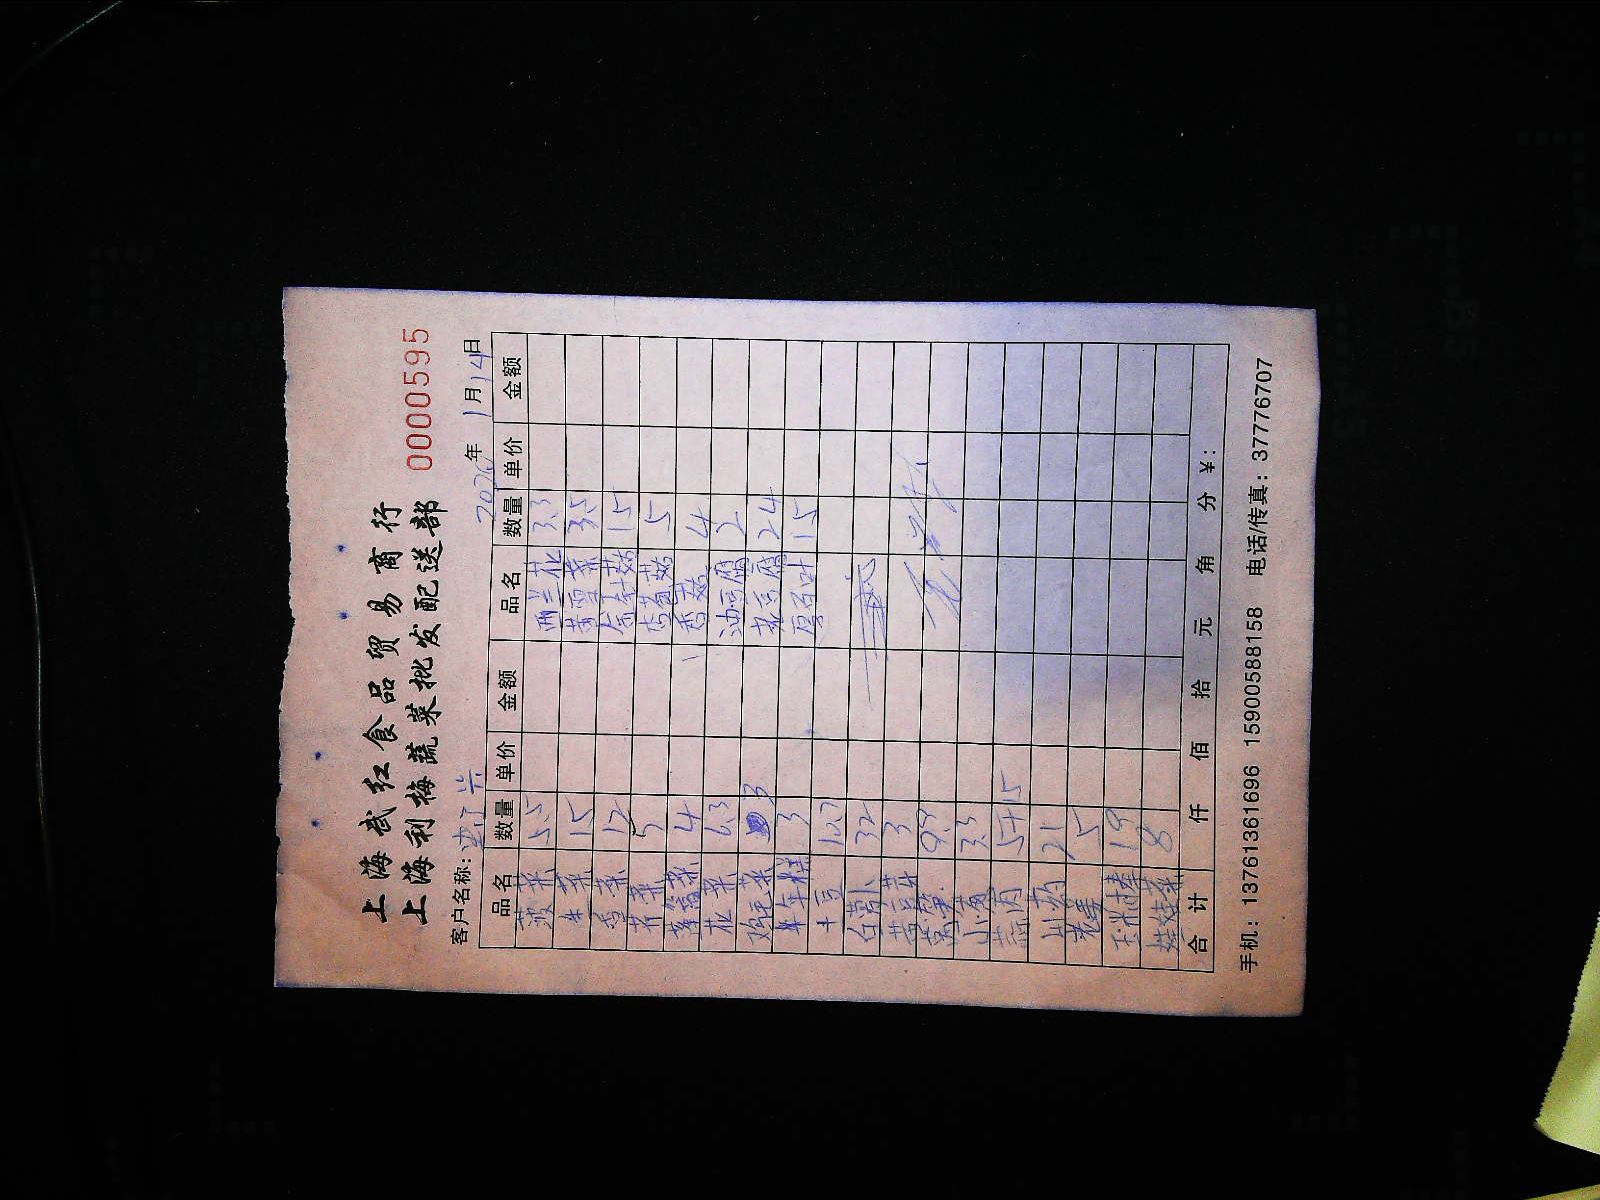 上海武红食品贸易商行
上海利梅蔬菜批发配送部
0000595
客户名称: 2020年1月14日
品名 数量 单价 金额 品名 数量 单价 金额
菠菜 5.5 西兰花 3.3
生菜 15 3.5
香菜 12 15
芹菜 5 菇 5
菜 4 香菇 4
花菜 6.3 油豆腐 2
鸡毛菜 3 老豆腐 24
年糕 3 厚百叶 15
土豆 10.7
白萝卜 32
黄豆芽 3
莴笋 9.8
小 3.3
5+15
山药 21
老姜 5
玉米棒 19
娃娃菜 8
合计 仟 佰 拾 元 角 分 ¥:
手机: 13761361696 15900588158 电话/传真: 37776707